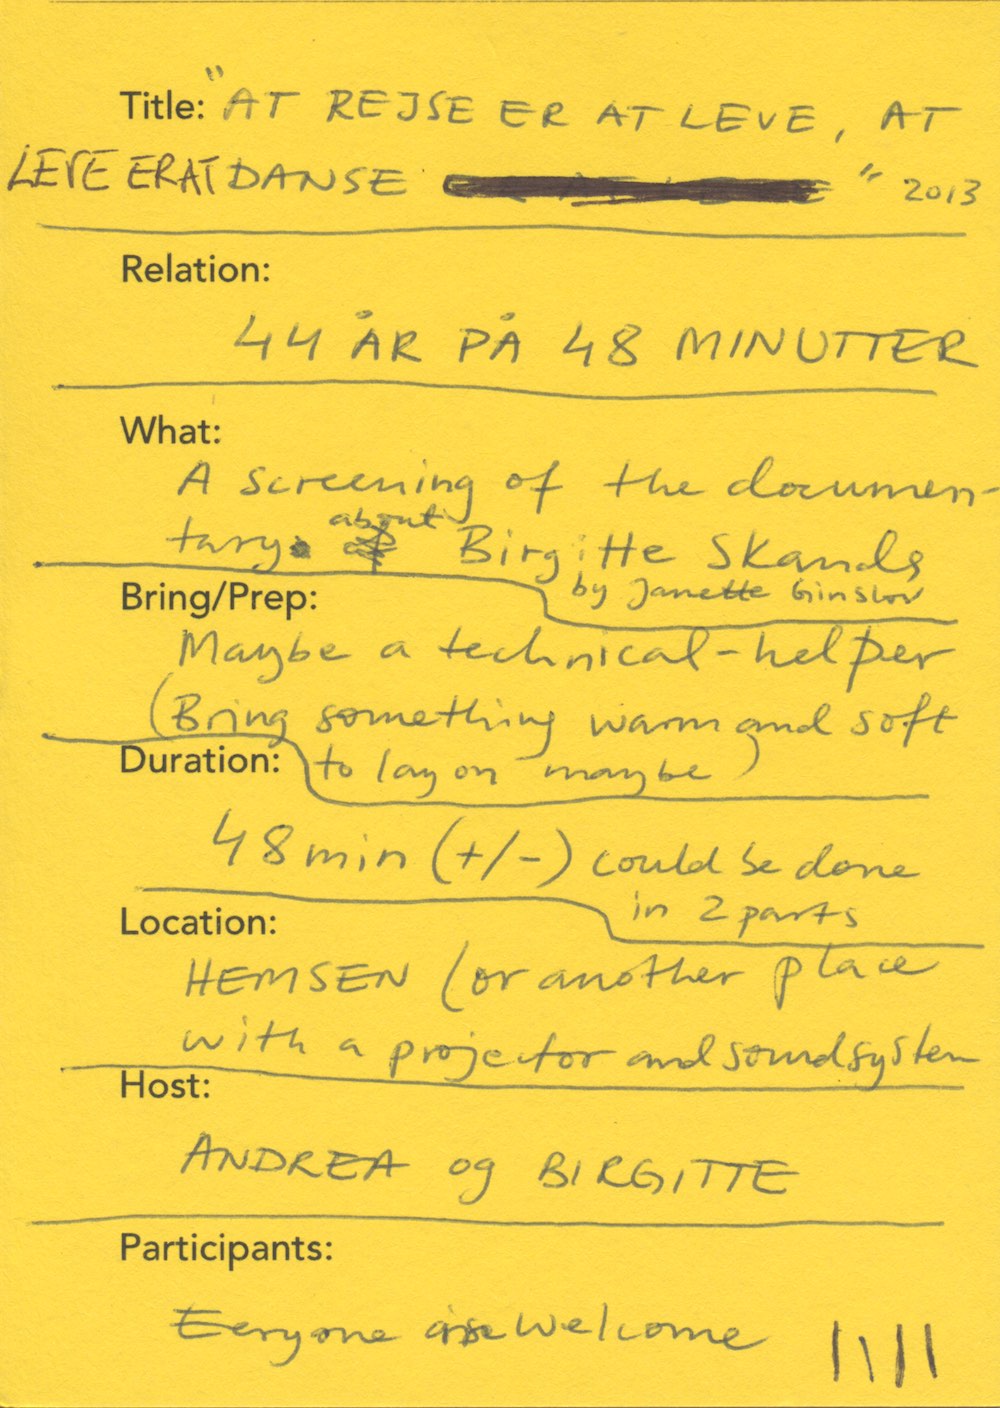 Title: "AT REJSE ER AT LEVE, AT
LEVE ER AT DANSE " 2013
Relation:
44 ÅR PÅ 48 MINUTTER
What:
A screening of the documen-
tary about Birgitte Skands
by Janette Ginslov
Bring/Prep:
Maybe a technical-helper
(Bring something warm and soft
to lay on maybe)
Duration:
48 min (+/-) could be done
in 2 parts
Location:
HEMSEN (or another place
with a projector and soundsystem
Host:
ANDREA og BIRGITTE
Participants:
Eeryone welcome